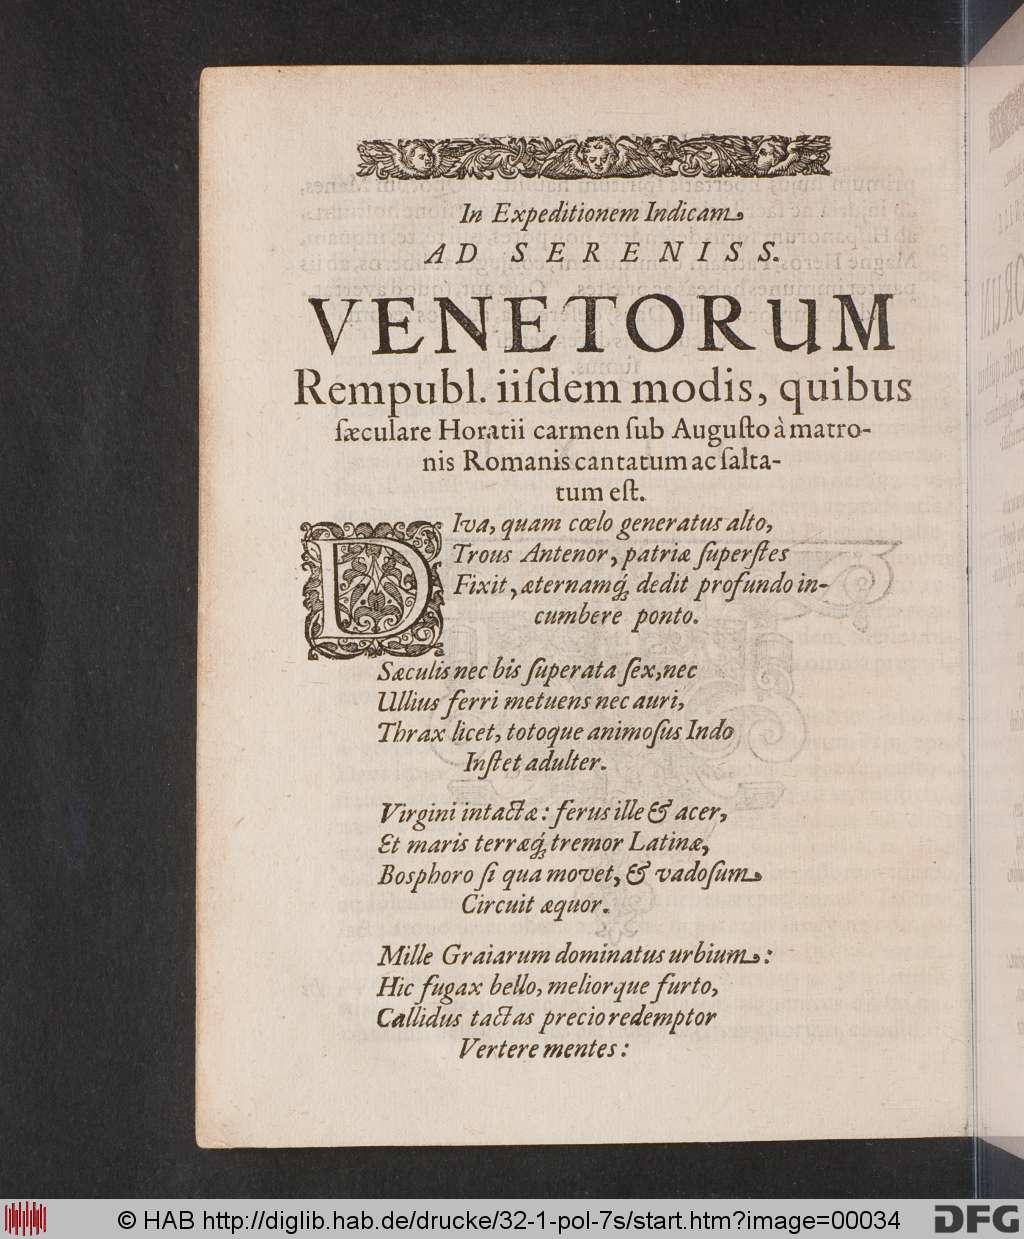 In Expeditionem Indicam
AD SERENISS.
VENETORUM
Rempubl. iiſdem modis, quibus
ſæculare Horatii carmen ſub Auguſto à matro-
nis Romanis cantatum ac ſalta-
tum eſt.
DIva, quam cœlo generatus alto,
Trous Antenor, patriæ ſuperſtes
Fixit, æternamq́; dedit profundo in-
cumbere ponto.
Sæculis nec bis ſuperata ſex, nec
Ullius ferri metuens nec auri,
Thrax licet, totoque animoſus Indo
Inſtet adulter.
Virgini intactæ: ferus ille & acer,
Et maris terræq́; tremor Latinæ,
Bosphoro ſi qua movet, & vadoſum
Circuit æquor.
Mille Graiarum dominatus urbium:
Hic fugax bello, meliorque furto,
Callidus tactas precio redemptor
Vertere mentes:
© HAB http://diglib.hab.de/drucke/32-1-pol-7s/start.htm?image=00034
DFG